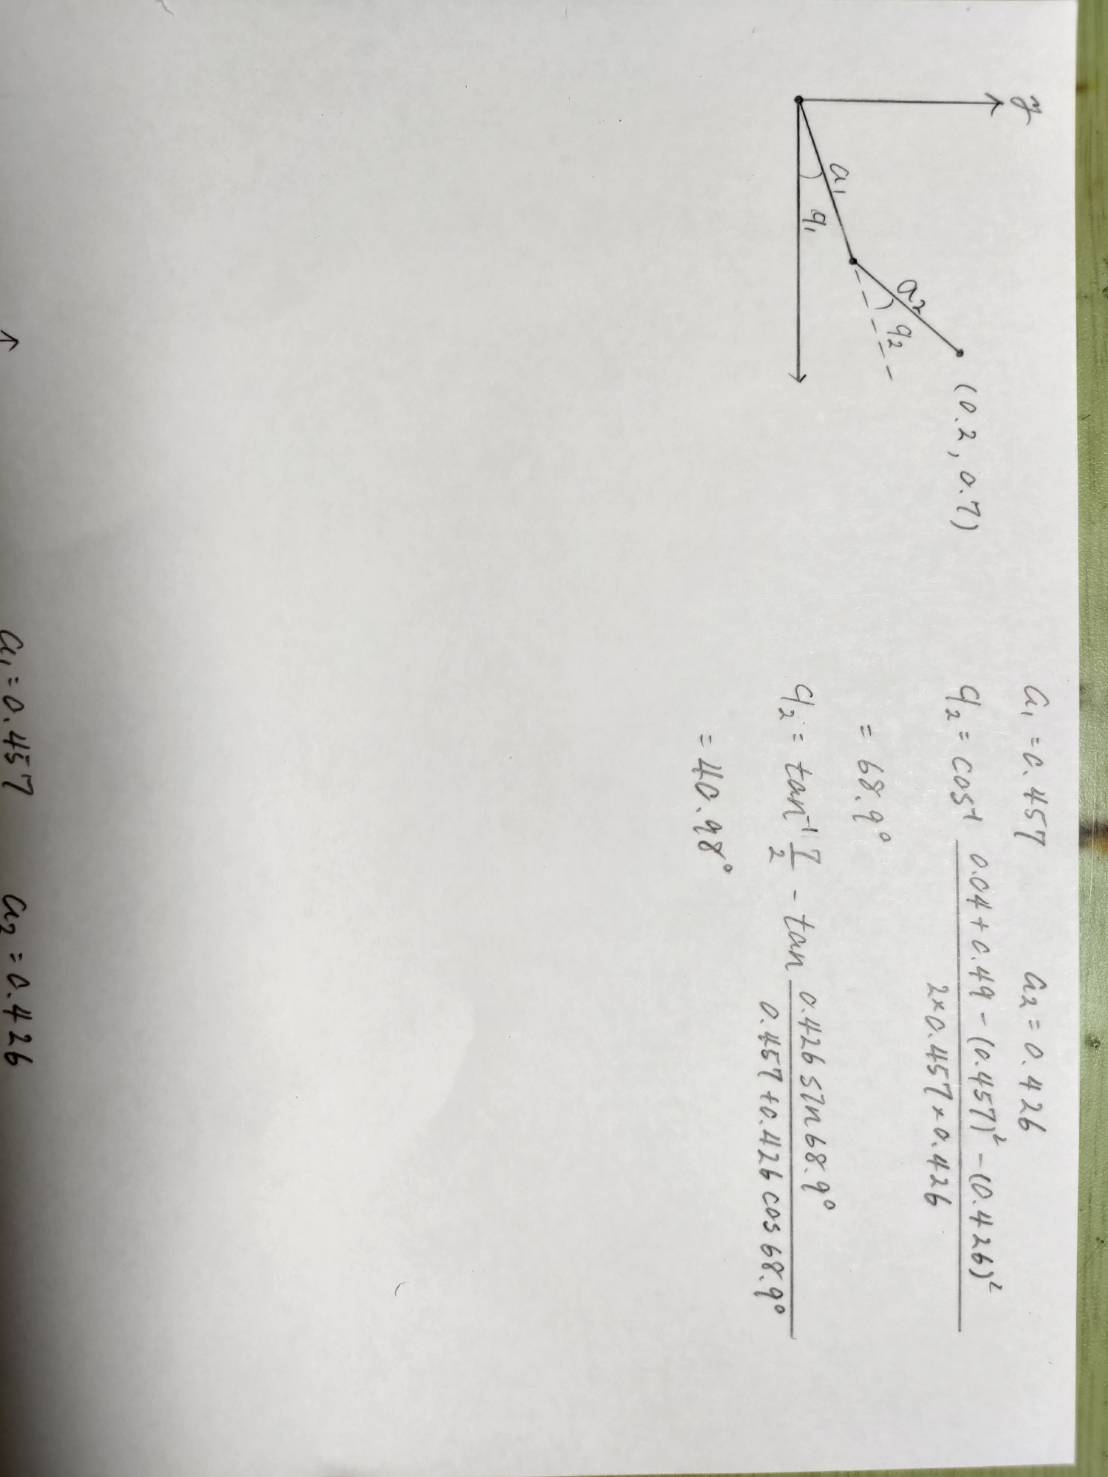 y
a₁
q₁
a₂
q₂
(0.2, 0.7)
a₁ = 0.457 a₂ = 0.426
q₂ = cos⁻¹ (0.04 + 0.49 - (0.457)² - (0.426)²) / (2×0.457×0.426)
= 68.9°
q₂ = tan⁻¹ 7/2 - tan (0.426 sin 68.9°) / (0.457 + 0.426 cos 68.9°)
= 40.98°
a₁ = 0.457 a₂ = 0.426